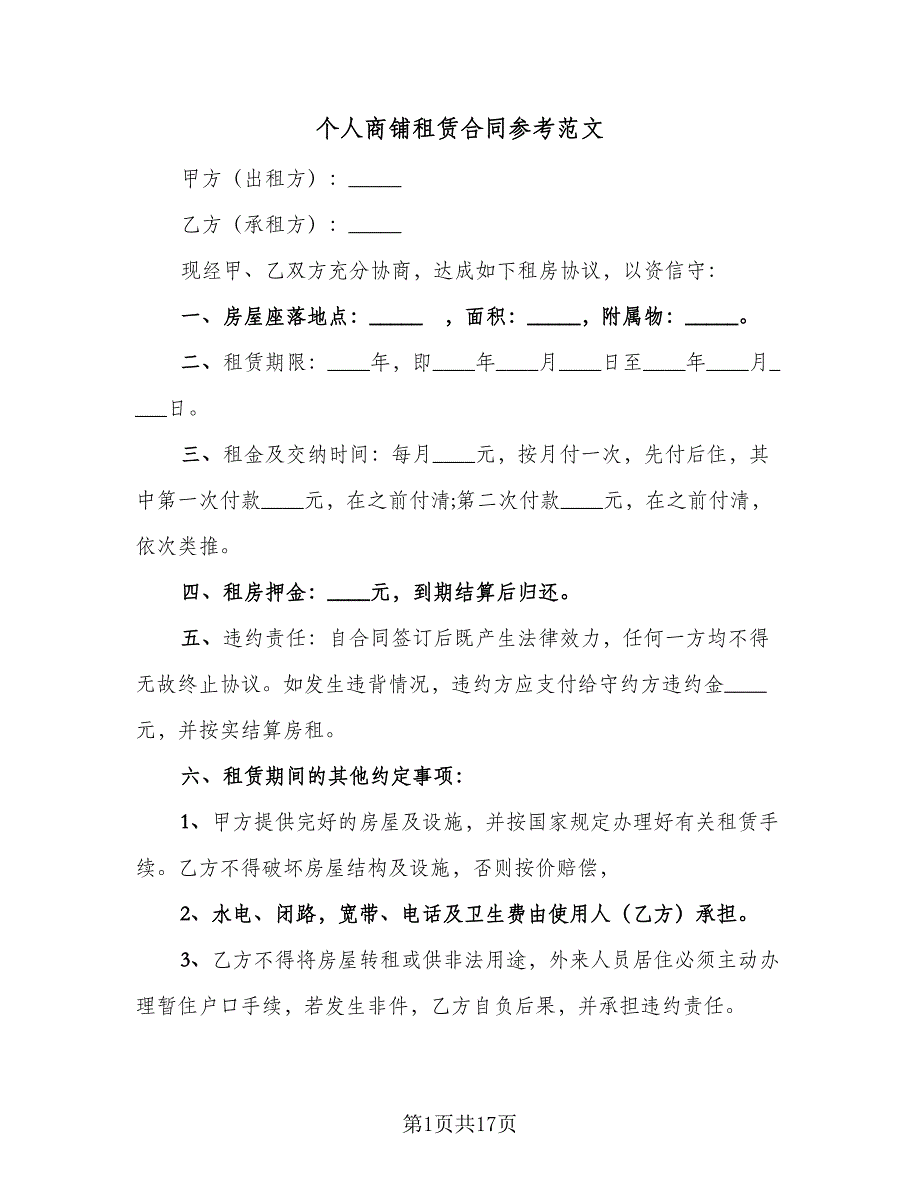 个人商铺租赁合同参考范文
甲方（出租方）：_____
乙方（承租方）：_____
现经甲、乙双方充分协商，达成如下租房协议，以资信守：
一、房屋座落地点：_____　，面积：_____，附属物：_____。
二、租赁期限：____年，即____年____月____日至____年____月_
___日。
三、租金及交纳时间：每月____元，按月付一次，先付后住，其
中第一次付款____元，在之前付清;第二次付款____元，在之前付清，
依次类推。
四、租房押金：____元，到期结算后归还。
五、违约责任：自合同签订后既产生法律效力，任何一方均不得
无故终止协议。如发生违背情况，违约方应支付给守约方违约金____
元，并按实结算房租。
六、租赁期间的其他约定事项：
1、甲方提供完好的房屋及设施，并按国家规定办理好有关租赁手
续。乙方不得破坏房屋结构及设施，否则按价赔偿，
2、水电、闭路，宽带、电话及卫生费由使用人（乙方）承担。
3、乙方不得将房屋转租或供非法用途，外来人员居住必须主动办
理暂住户口手续，若发生非件，乙方自负后果，并承担违约责任。
第1页共17页